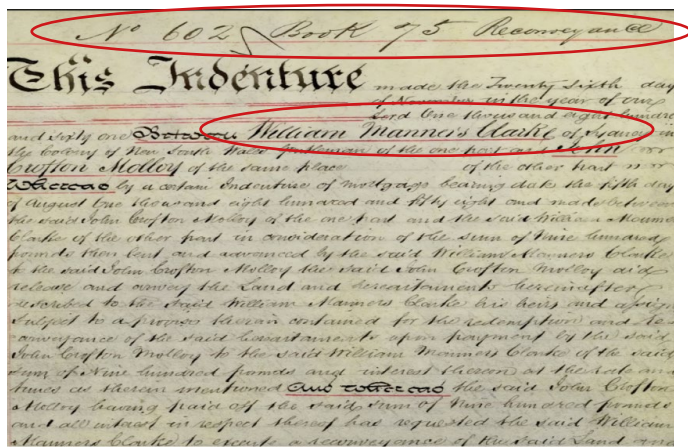 No 602 Book 75 Reconveyance
This Indenture made the Twenty Sixth day
of November in the year of our
Lord One thousand and eight hundred
and sixty one Between William Manners Clarke of Sydney in
the Colony of New South Wales Gentleman of the one part and John
Crofton Molloy of the same place of the other part
Whereas by a certain Indenture of Mortgage bearing date the fifth day
of August One thousand eight hundred and fifty eight and made between
the said John Crofton Molloy of the one part and the said William Manners
Clarke of the other part in consideration of the sum of Nine hundred
pounds then lent and advanced by the said William Manners Clarke
to the said John Crofton Molloy the said John Crofton Molloy did
release and convey the Land and hereditaments hereinafter
described to the said William Manners Clarke his heirs and assigns
subject to a proviso therein contained for the redemption and Re
conveyance of the said hereditaments upon payment by the said
John Crofton Molloy to the said William Manners Clarke of the said
sum of Nine hundred pounds and interest thereon at the rate and
times as therein mentioned And Whereas the said John Crofton
Molloy having paid off the said sum of Nine hundred pounds
and all interest in respect thereof has requested the said William
Manners Clarke to execute a reconveyance of the said Land and